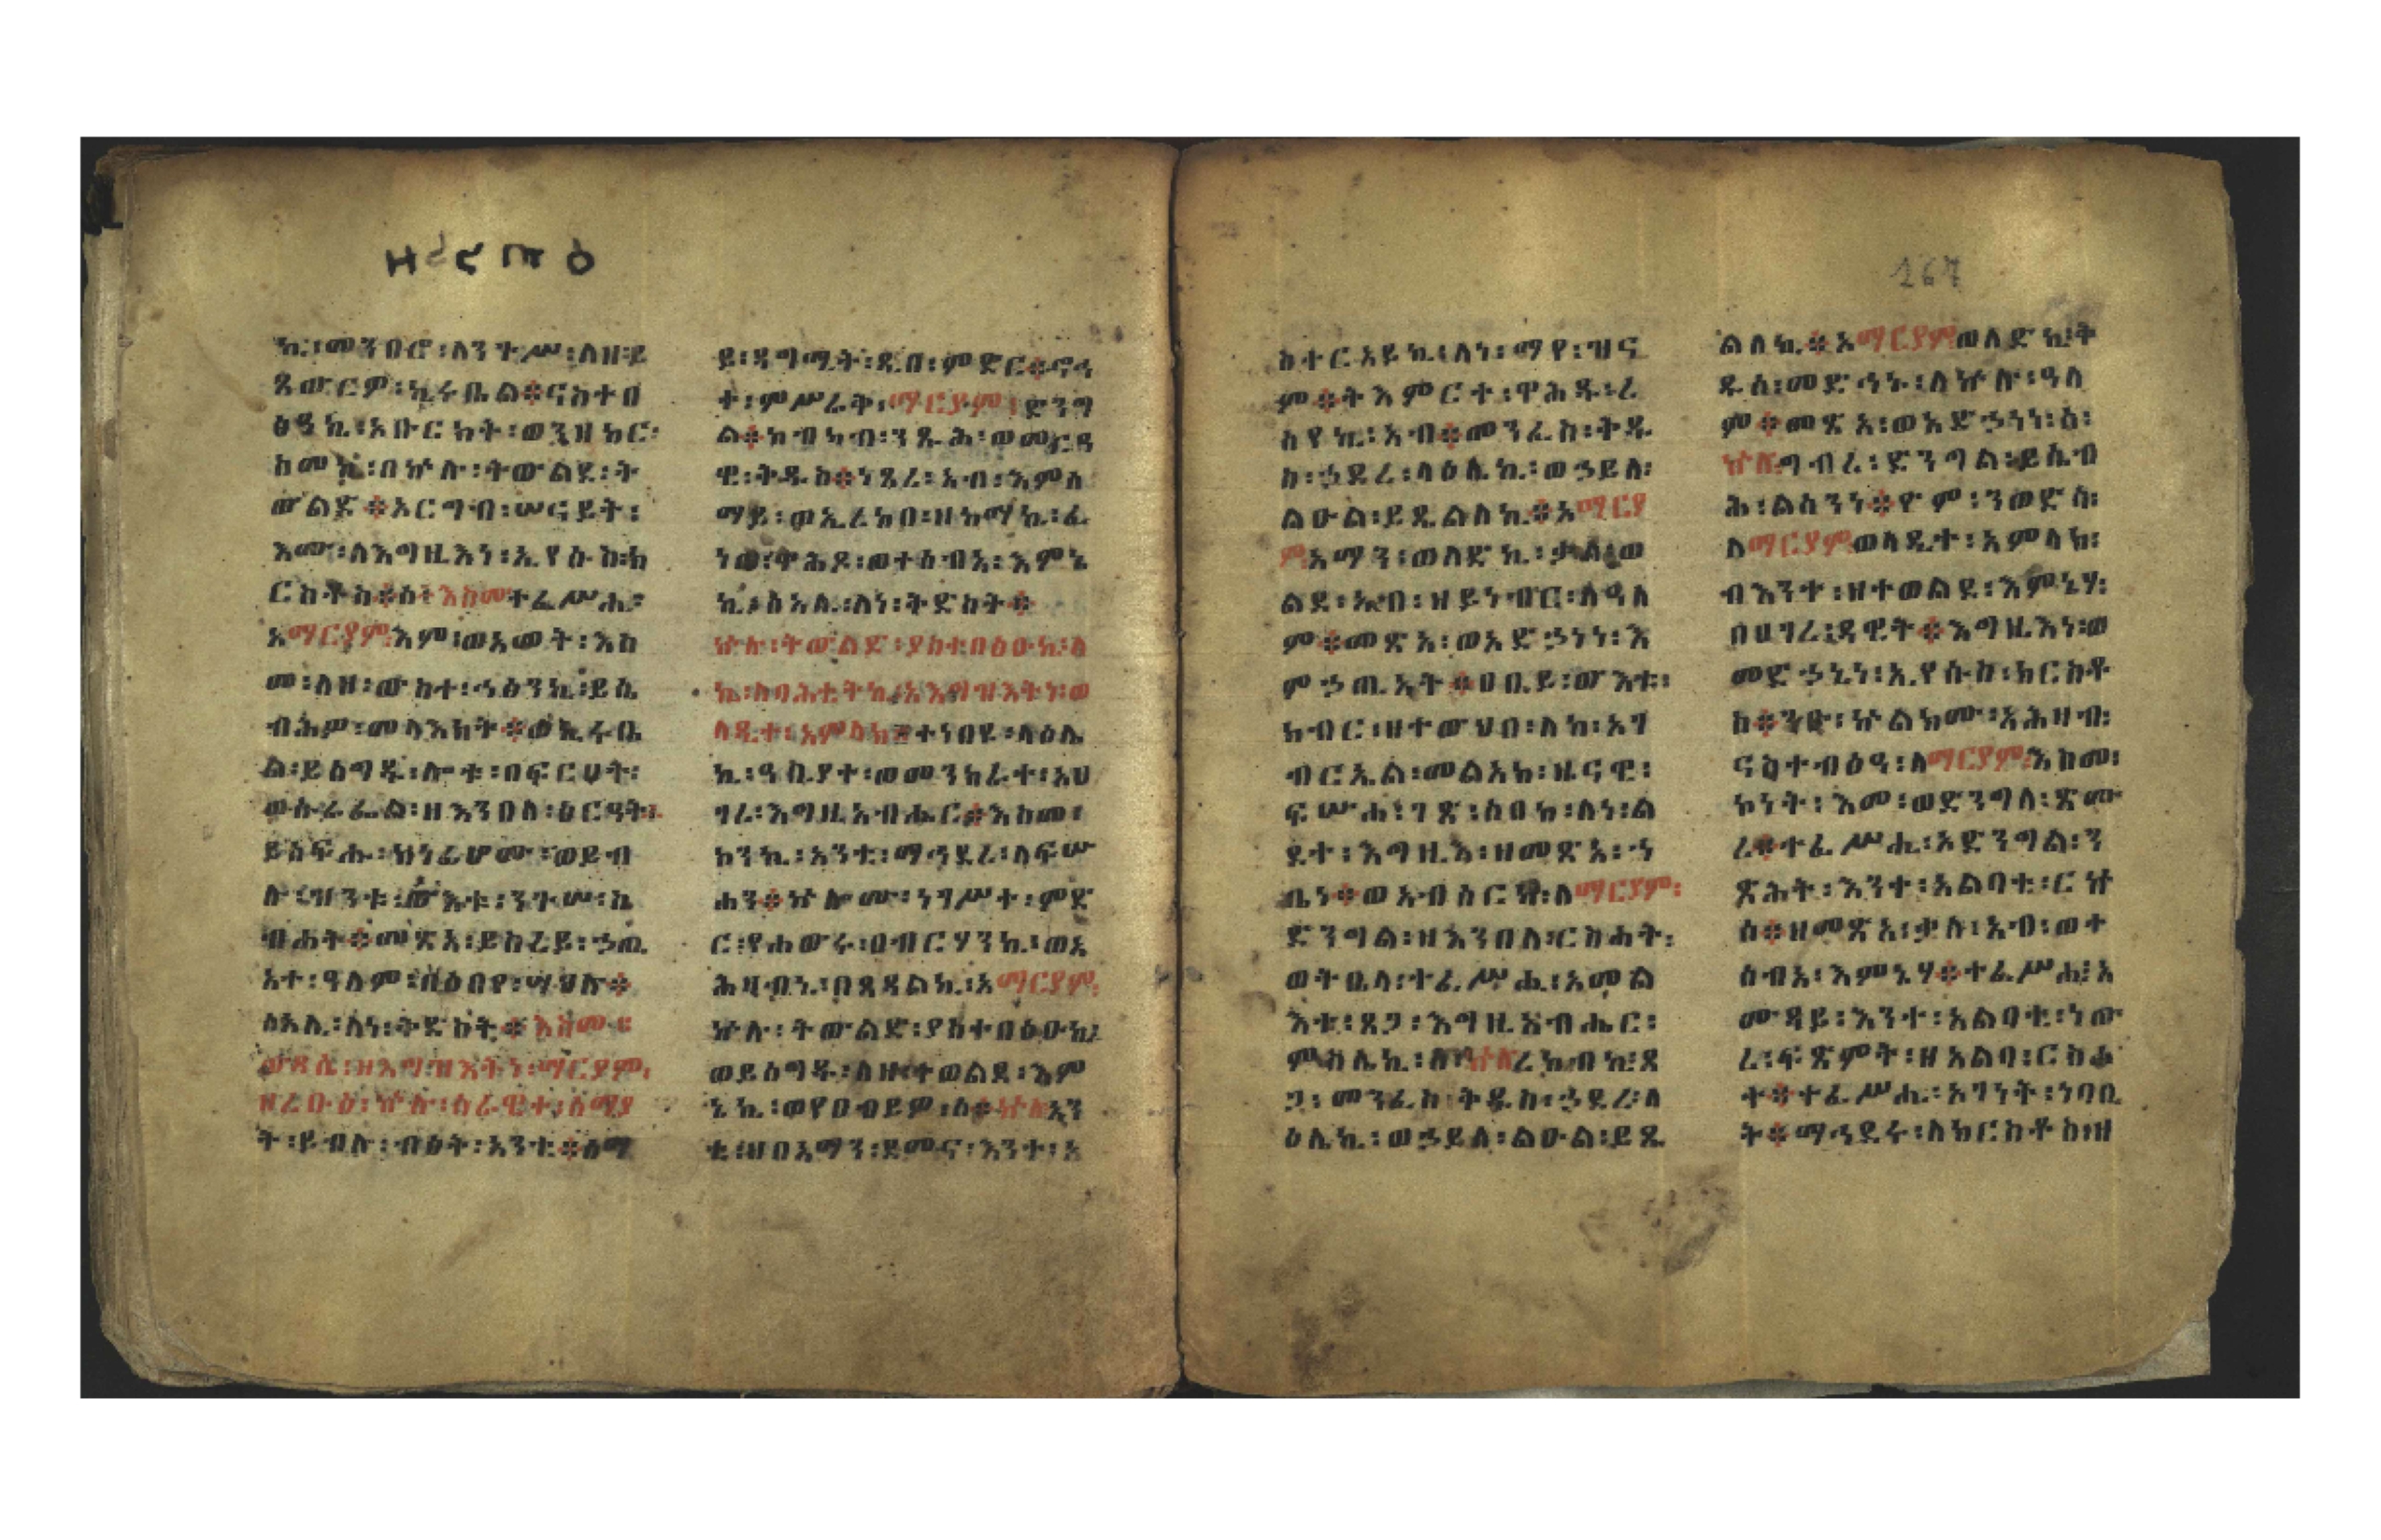 ዘረቡዕ
ኪ፡መንበሮ፡ለንጉሥ፡ለዘ፡ይ
ጸውርዎ፡ኪሩቤል።ናስተበ
ፅዓኪ፡አቡርክት፡ወንዘክር፡
ስመኪ፡በኵሉ፡ትውልደ፡ት
ውልድ።አርግብ፡ሠናይት፡
እሙ፡ለእግዚእነ፡ኢየሱስ፡ክ
ርስቶስ።ስ፡እስመተፈሥሒ፡
አማርያም፡እም፡ወአመት፡እስ
መ፡ለዘ፡ውስተ፡ኅፅንኪ፡ይሴ
ብሕዎ፡መላእክት።ወኪሩቤ
ል፡ይሰግዱ፡ሎቱ፡በፍርሀት፡
ወሱራፌል፡ዘእንበለ፡ፅርዓት፡
ይሰፍሑ፡ክነፊሆሙ፡ወይብ
ሉ፡ዝንቱ፡ውእቱ፡ንጉሠ፡ስ
ብሐት።መጽአ፡ይስረይ፡ኃጢ
አተ፡ዓለም፡በዕበየ፡ሣህሉ።
ሰአሊ፡ለነ፡ቅድስት።እስመ፡
ውዳሴ፡ዘእግዝእትነ፡ማርያም፡
ዘረቡዕ፡ኵሉ፡ሰራዊተ፡ሰማያ
ት፡ይብሉ፡ብፅት፡አንቲ።ሰማ
ይ፡ዳግሚት፡ዲበ፡ምድር።ኆኅ
ተ፡ምሥራቅ፡ማርያም፡ድንግ
ል።ከብካብ፡ንጹሕ፡ወመርዓ
ዊ፡ቅዱስ።ነጸረ፡አብ፡እምሰ
ማይ፡ወኢረከበ፡ዘከማኪ፡ፈ
ነወ፡ዋሕዶ፡ወተሰብአ፡እምኔ
ኪ፡ሰአሊ፡ለነ፡ቅድስት።
ኵሉ፡ትውልድ፡ያስተበፅዑኪ፡ለ
ኪ፡ለባሕቲትኪ፡እእግዝእትነ፡ወ
ላዲተ፡አምላክ።ተነበዩ፡ላዕሌ
ኪ፡ዓቢያተ፡ወመንክራተ፡አህ
ገረ፡እግዚአብሔር።እስመ፡
ኮንኪ፡አንቲ፡ማኅደረ፡ለፍሡ
ሐን።ኵሎሙ፡ነገሥተ፡ምድ
ር፡የሐውሩ፡በብርሃንኪ፡ወአ
ሕዛብኒ፡በጸዳልኪ፡አማርያም፡
ኵሉ፡ትውልድ፡ያስተበፅዑኪ፡
ወይሰግዱ፡ለዘ፡ተወልደ፡እም
ኔኪ፡ወየዐብይዎ፡ሰ።ኵሉአን
ቲ፡ዘበአማን፡ደመና፡እንተ፡አ
ስተርአይኪ፡ለነ፡ማየ፡ዝና
ም።ትእምርተ፡ዋሕዱ፡ረ
ሰየኪ፡አብ።መንፈስ፡ቅዱ
ስ፡ኃደረ፡ላዕሌኪ፡ወኃይለ፡
ልዑል፡ይጼልለኪ።አማርያ
ም፡አማን፡ወለድኪ፡ቃለ፡ወ
ልደ፡አብ፡ዘይነብር፡ለዓለ
ም።መጽአ፡ወአድኃነነ፡እ
ምኃጢአት።ዐቢይ፡ውእቱ፡
ክብር፡ዘተውህበ፡ለከ፡አገ
ብርኤል፡መልአክ፡ዜናዊ፡
ፍሡሐ፡ገጽ፡ሰበከ፡ለነ፡ል
ደተ፡እግዚእ፡ዘመጽአ፡ኀ
ቤነ።ወአብሰርካ፡ለማርያም፡
ድንግል፡ዘእንበለ፡ርስሐት፡
ወትቤላ፡ተፈሥሒ፡አመል
እቱ፡ጸጋ፡እግዚአብሔር፡
ምስሌኪ፡ሰ፡ኵሉረከብኪ፡ጸ
ጋ፡መንፈስ፡ቅዱስ፡ኃደረ፡ላ
ዕሌኪ፡ወኃይለ፡ልዑል፡ይጼ
ልለኪ።አማርያምወለድኪ፡ቅ
ዱሰ፡መድኅነ፡ለኵሉ፡ዓለ
ም።መጽአ፡ወአድኃነነ፡ሰ፡
ኵሉ፡ግብረ፡ድንግል፡ይሴብ
ሕ፡ልሳንነ።ዮም፡ንወድሳ፡
ለማርያምወላዲተ፡አምላክ፡
በእንተ፡ዘተወልደ፡እምኔሃ፡
በሀገረ፡ዳዊት።እግዚእነ፡ወ
መድኃኒነ፡ኢየሱስ፡ክርስቶ
ስ።ንዑ፡ኵልክሙ፡አሕዛብ፡
ናስተብፅዓ፡ለማርያም፡እስመ፡
ኮነት፡እመ፡ወድንግለ፡ጽሙ
ረ።ተፈሥሒ፡አድንግል፡ን
ጽሕት፡እንተ፡አልባቲ፡ርኵ
ሰ።ዘመጽአ፡ቃለ፡አብ፡ወተ
ሰብአ፡እምኔሃ።ተፈሥሒ፡አ
ሙዳይ፡እንተ፡አልባቲ፡ነው
ረ፡ፍጽምት፡ዘአልባ፡ርስሐ
ተ።ተፈሥሒ፡አገነት፡ነባቢ
ት።ማኅደሩ፡ለክርስቶስ፡ዘ